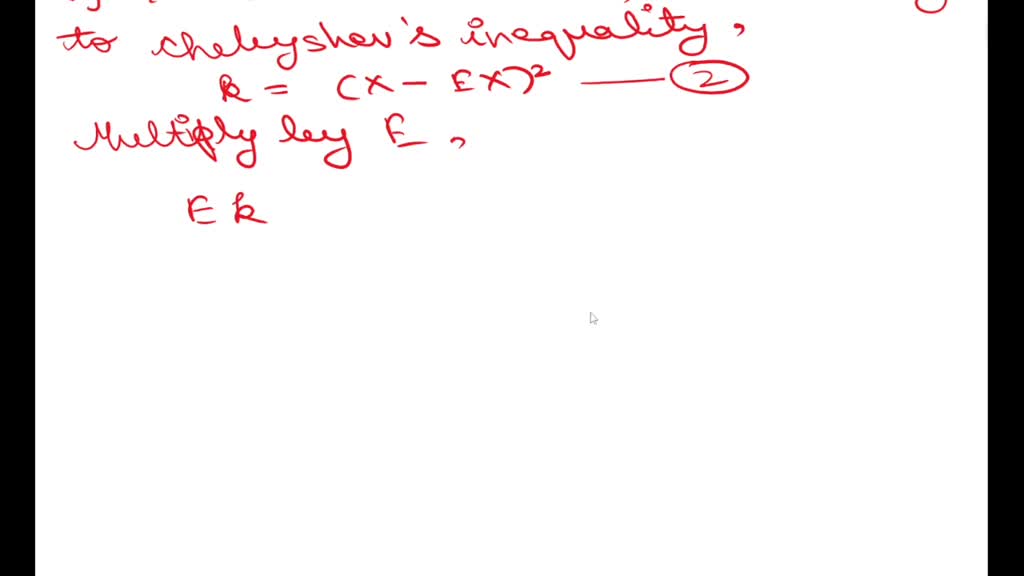 to Chebyshev's inequality,
k = (X - EX)² —— 2
Multiply by E,
E k